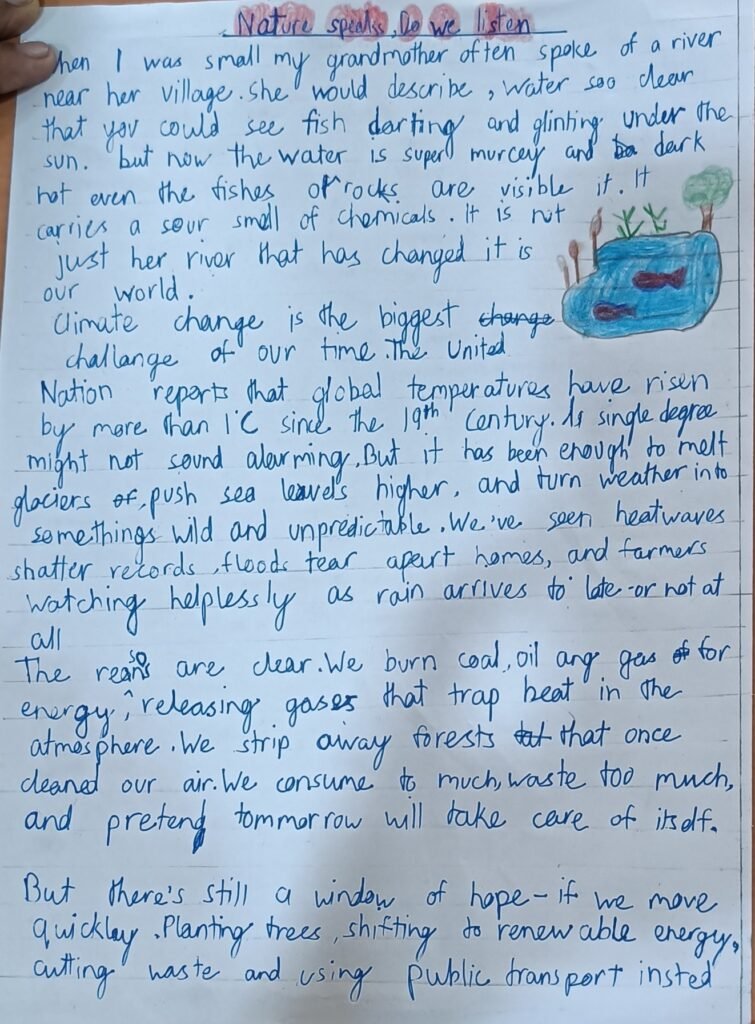 Nature speaks, Do we listen
hen I was small my grandmother often spoke of a river
near her village. She would describe, water soo clear
that you could see fish darting and glinting under the
sun. but now the water is super murcey and dark
not even the fishes or rocks are visible it. It
carries a sour smell of chemicals. It is not
just her river that has changed it is
our world.
Climate change is the biggest change
challange of our time. The United
Nation reports that global temperatures have risen
by more than 1°C since the 19th Century. A single degree
might not sound alarming. But it has been enough to melt
glaciers of, push sea leavels higher, and turn weather into
somethings wild and unpredictable. We've seen heatwaves
shatter records, floods tear apart homes, and farmers
watching helplessly as rain arrives to late-or not at
all
The reasons are clear. We burn coal, oil ang gas of for
energy, releasing gases that trap heat in the
atmosphere. We strip away forests tat that once
cleaned our air. We consume to much, waste too much,
and pretend tommorrow will take care of itself.
But there's still a window of hope - if we move
quickley. Planting trees, shifting to renewable energy,
cutting waste and using public transport insted